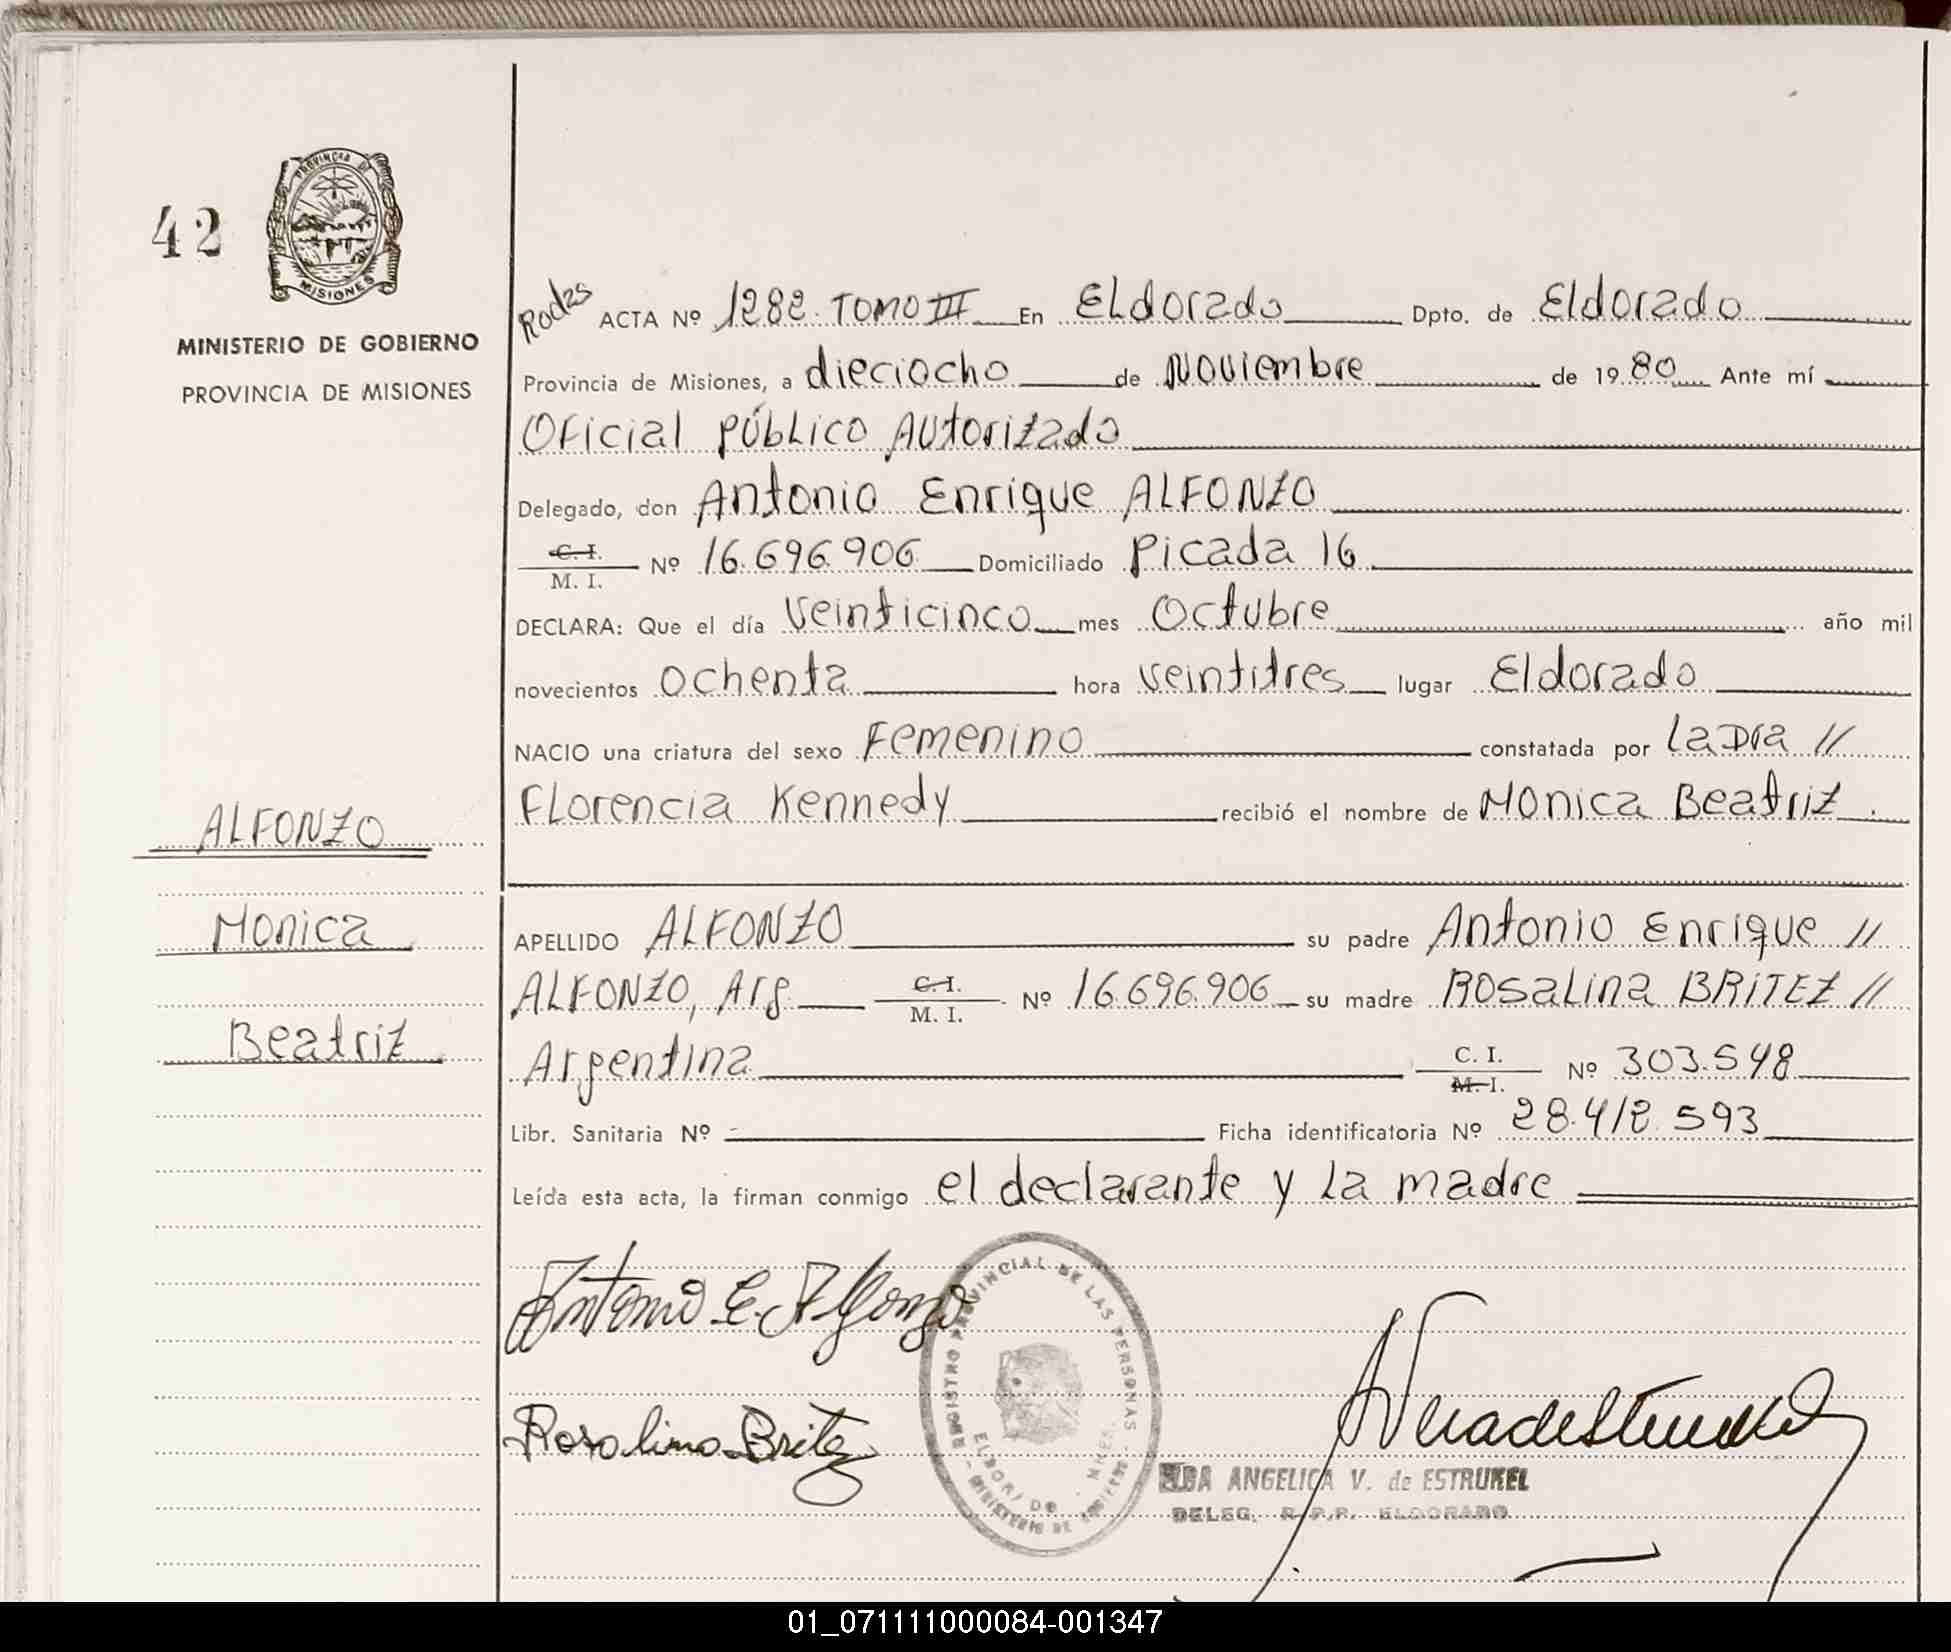 42
PROVINCIA DE
MISIONES
MINISTERIO DE GOBIERNO
PROVINCIA DE MISIONES
Rodas ACTA Nº 1282. TOMO III En ELdorado Dpto. de Eldorado
Provincia de Misiones, a dieciocho de Noviembre de 1980 Ante mí
Oficial Público Autorizado
Delegado, don Antonio Enrique ALFONZO
C. I.
M. I. Nº 16.696.906 Domiciliado Picada 16
DECLARA: Que el día Veinticinco mes Octubre año mil
novecientos ochenta hora veintitres lugar Eldorado
NACIO una criatura del sexo Femenino constatada por La Dra //
Florencia Kennedy recibió el nombre de Monica Beatriz
ALFONZO
Monica
Beatriz
APELLIDO ALFONZO su padre Antonio Enrique //
ALFONZO, Arg. C. I.
M. I. Nº 16.696.906 su madre Rosalina BRITEZ //
Argentina C. I.
M. I. Nº 303.548
Libr. Sanitaria Nº - Ficha identificatoria Nº 28.412.593
Leída esta acta, la firman conmigo el declarante y la madre
Antonio E. Alfonzo
Rosalina Britez
REGISTRO PROVINCIAL DE LAS PERSONAS
MINISTERIO DE
ELDA ANGELICA V. de ESTRUKEL
DELEG. R.P.P. ELDORADO
01_071111000084-001347